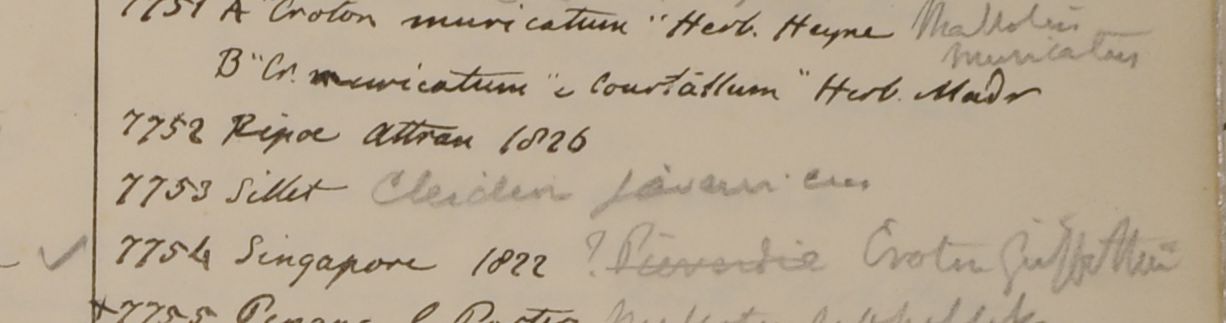 7751 A "Croton muricatum" Herb. Heyne Mallotus
muricatus
B "Cr. muricatum" e Courtallum" Herb. Madr
7752 Ripoe Attran 1826
7753 Sillet Cleidion javanicum
7754 Singapore 1822 ? Pierardia Croton Griffithii
7755 Penang Porter